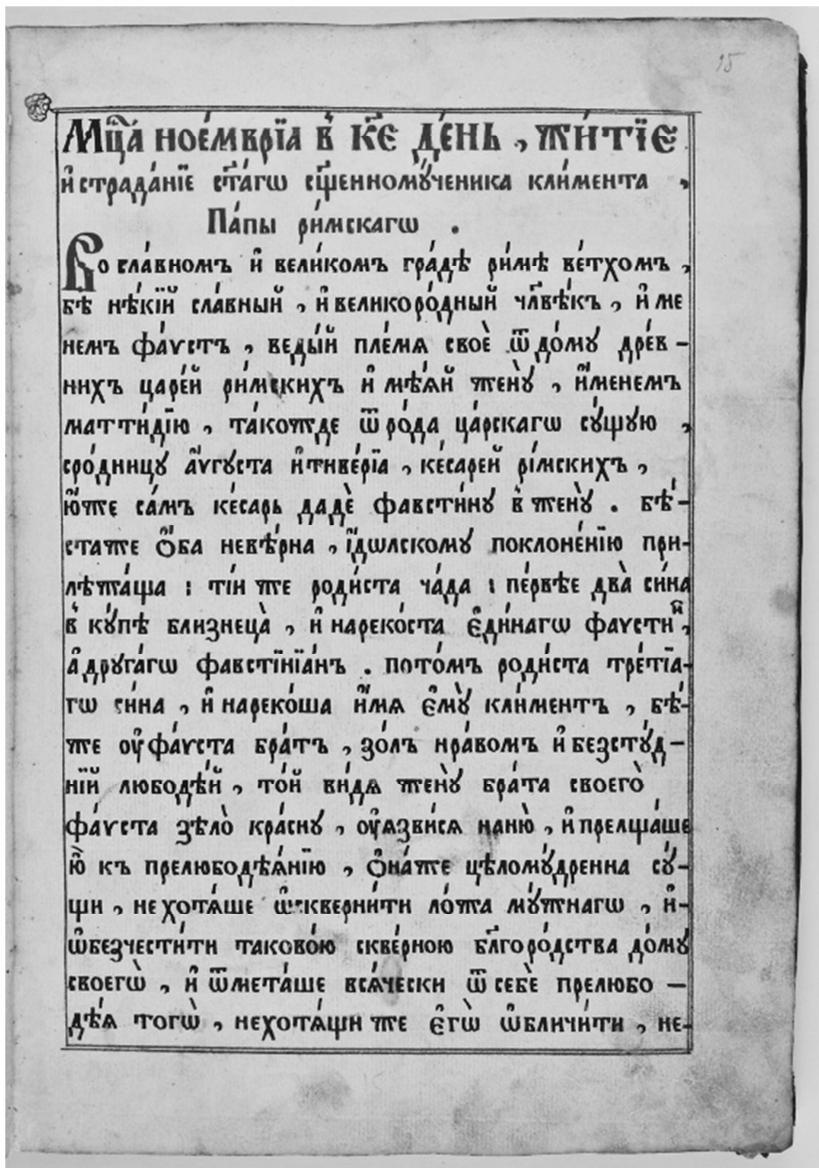 95
Мц҃а ное́мврїа в҆ к҃е де́нь , жи́тїе
и҆ страда́нїе ст҃а́гѡ сщ҃енномꙋ́ченика кли́мента ,
Па́пы ри́мскагѡ .
Во сла́вномъ и҆ вели́комъ гра́дѣ ри́мѣ ве́тхомъ ,
бѣ̀ нѣ́кїй сла́вный , и҆ великоро́дный чл҃вѣ́къ , и҆ме
немъ фа́ѵстъ , веды́й пле́мѧ своѐ ѿ до́мꙋ дре́в –
нихъ царе́й ри́мскихъ и҆ мѣ́ѧй женꙋ̀ , и҆́менемъ
матті́дїю , та́кожде ѿ ро́да ца́рскагѡ сꙋ́щꙋю ,
сро́дницꙋ а҆́ѵгꙋста и҆ тиве́рїа , ке́сарей рі́мскихъ ,
ю҆́же са́мъ ке́сарь дадѐ фавсти́нꙋ в҆ женꙋ̀ . бѣ́-
стаже ѻ҆́ба невѣ́рна , і҆́дѡлскомꙋ поклоне́нїю при-
лѣжа́ща : ті́и же роди́ста ча́да : пе́рвѣе два̀ си́на
в҆ кꙋ́пѣ близнеца̀ , и҆ нареко́ста є҆ди́нагѡ фаѵсти́н ,
а҆ дрꙋга́гѡ фавстїнїа́нъ . пото́мъ роди́ста тре́тїа-
гѡ си́на , и҆ нареко́ша и҆́мѧ є҆мꙋ̀ кли́ментъ , бѣ́-
же ᲂу҆ фа́ѵста бра́тъ , зо́лъ нра́вомъ и҆ безстꙋ́д –
нїй любодѣ́й , то́й ви́дѧ женꙋ̀ бра́та своего̀
фа́ѵста ѕѣло̀ кра́снꙋ , ᲂу҆ѧзви́сѧ наню̀ , и҆ прелща́ше
ю҆̀ къ прелюбодѣѧ́нїю , ѻ҆на́же цѣломꙋ́дренна сꙋ́-
щи , не хотѧ́ше ѡ҆скверни́ти ло́жа мꙋ́жнагѡ , и҆-
ѡ҆безче́стити таково́ю скве́рною бл҃горо́дства до́мꙋ
своегѡ̀ , и҆ ѿмета́ше всѧ́чески ѿ себѐ прелюбо –
дѣ́ѧ тогѡ̀ , нехотѧ́щи же є҆гѡ̀ ѡ҆бличи́ти , не-